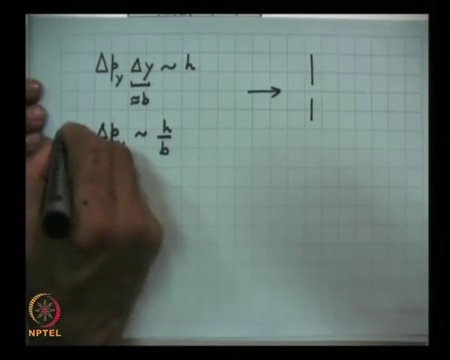 Δp_y Δy ~ h
≈b
Δp ~ h/b
NPTEL